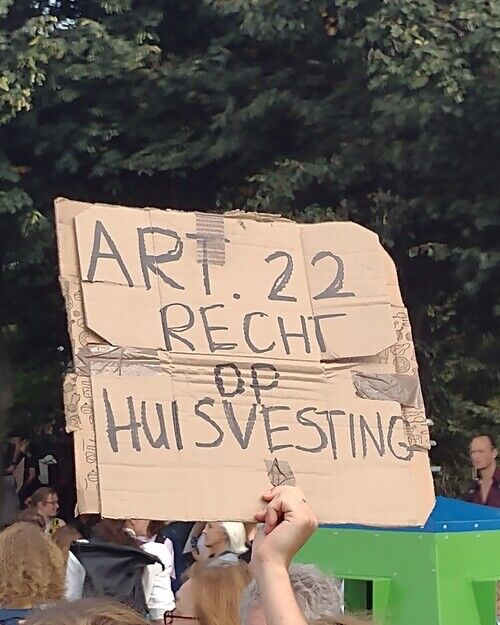 ART. 22
RECHT
OP
HUISVESTING